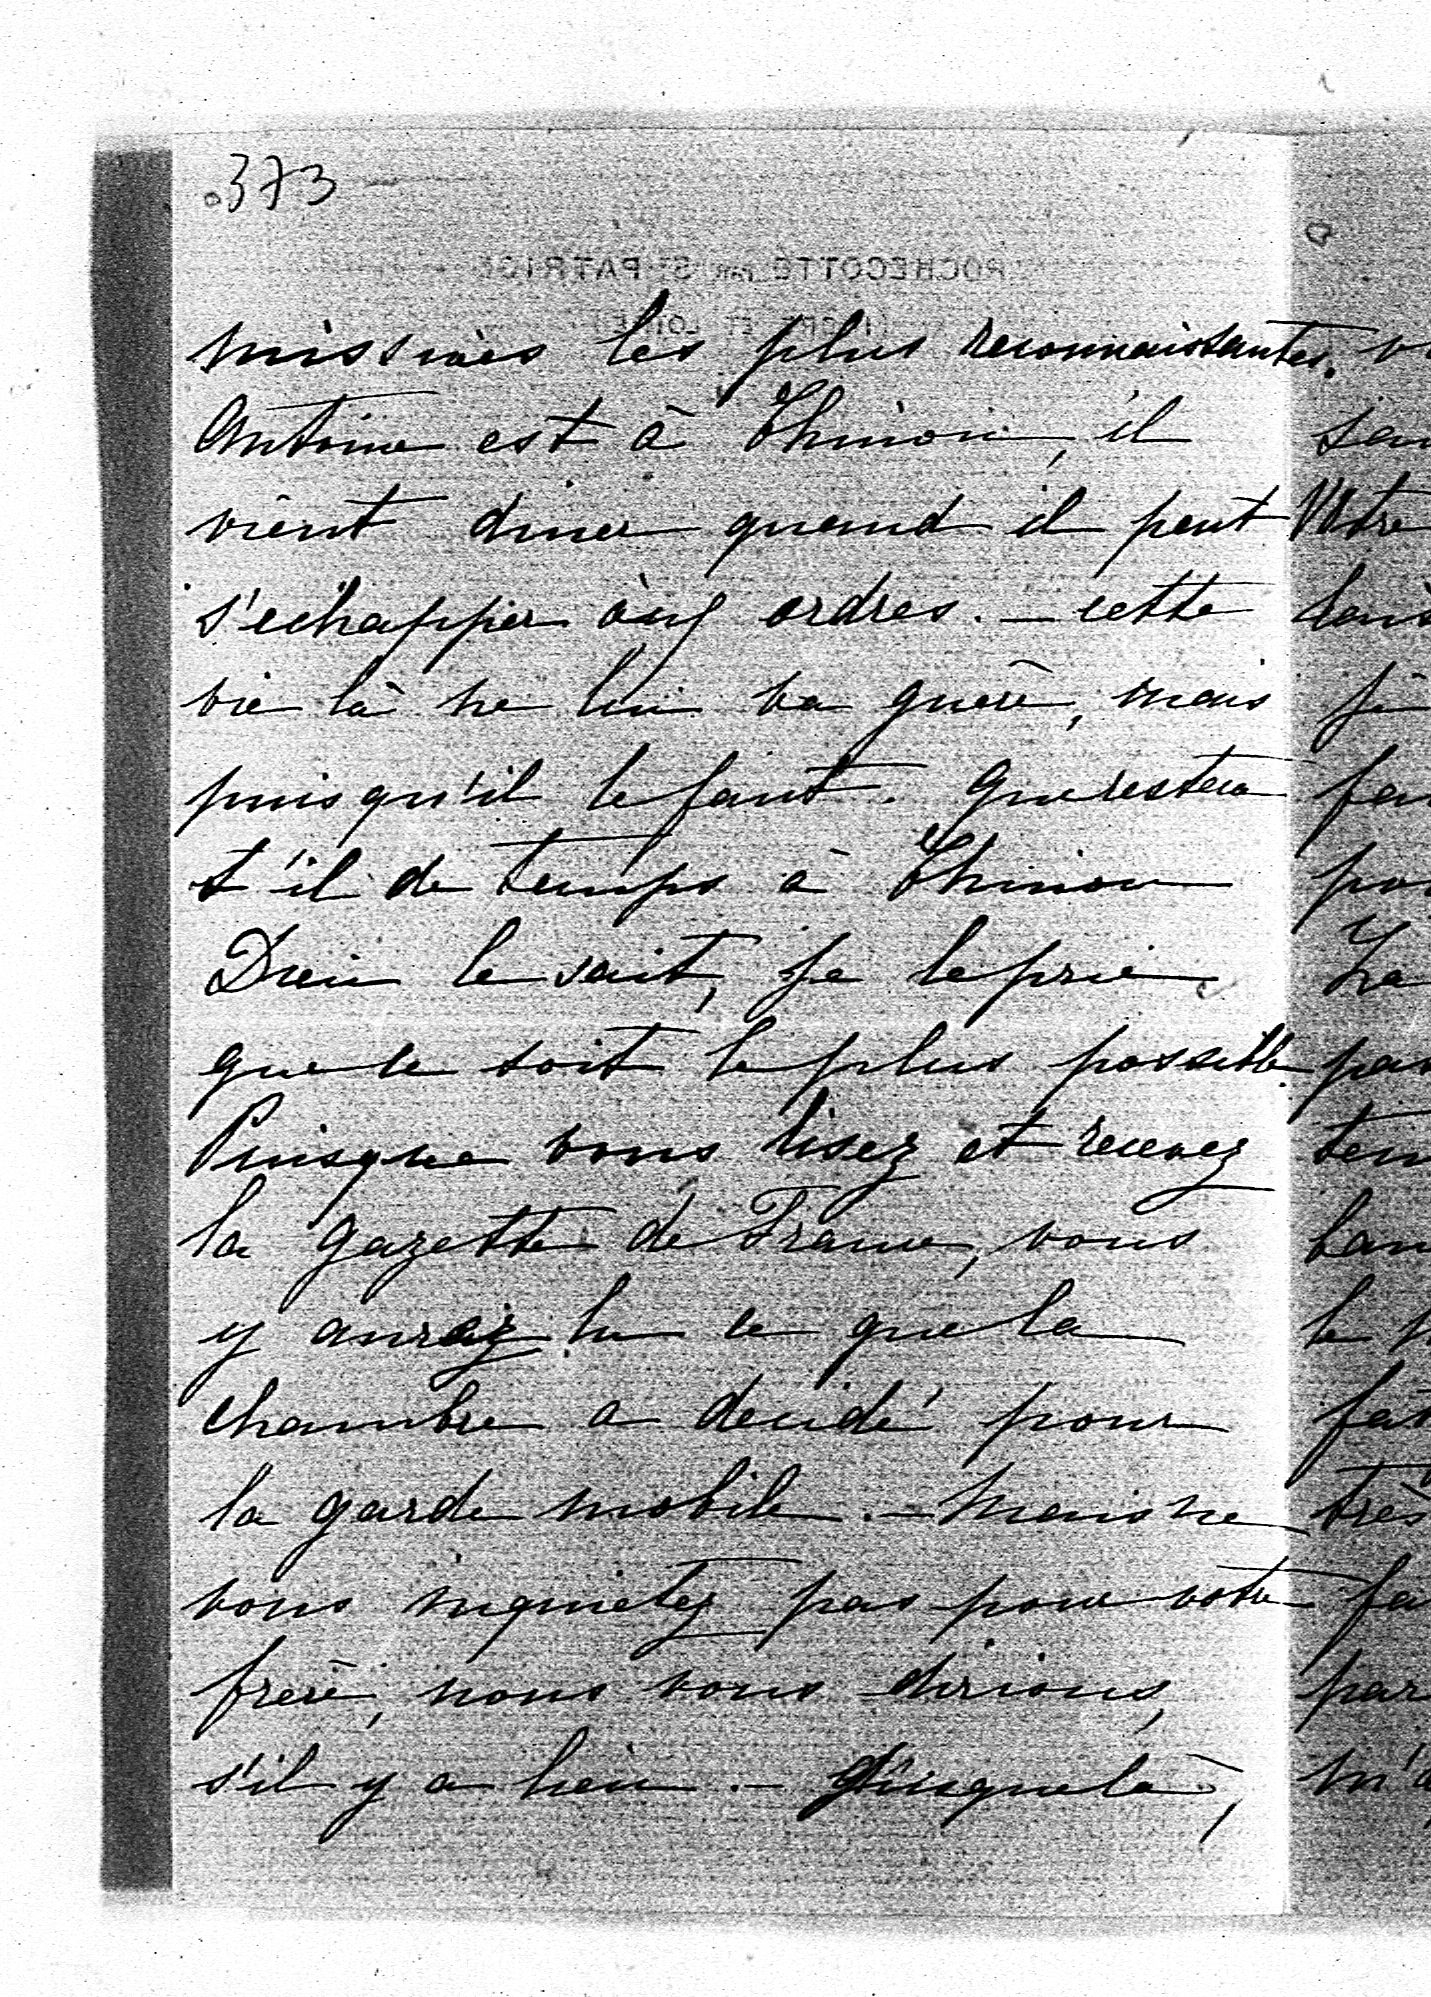 373
ROCHECOTTE PAR ST PATRICE
(INDRE ET LOIRE)
missives les plus reconnaissantes.
Antoine est à Chinon, il
vient diner quand il peut
s'echapper aux ordres. — cette
vie là ne lui va guère, mais
puisqu'il le faut. Que restera
t'il de temps à Chinon
Dieu le sait, je le prie
que ce soit le plus possible.
Puisque vous lisez et recevez
la gazette de France, vous
y aurez lu ce que la
chambre a decidé pour
la garde mobile. — Mais ne
vous inquietez pas pour votre
frère, nous vous dirions,
s'il y a lieu. — Jusque là,